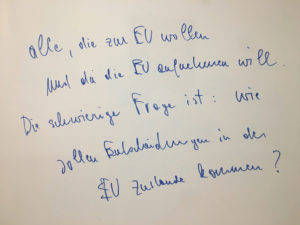 alle, die zur EU wollen
und die die EU aufnehmen will.
Die schwierige Frage ist: wie
sollen Entscheidungen in der
EU zustande kommen?